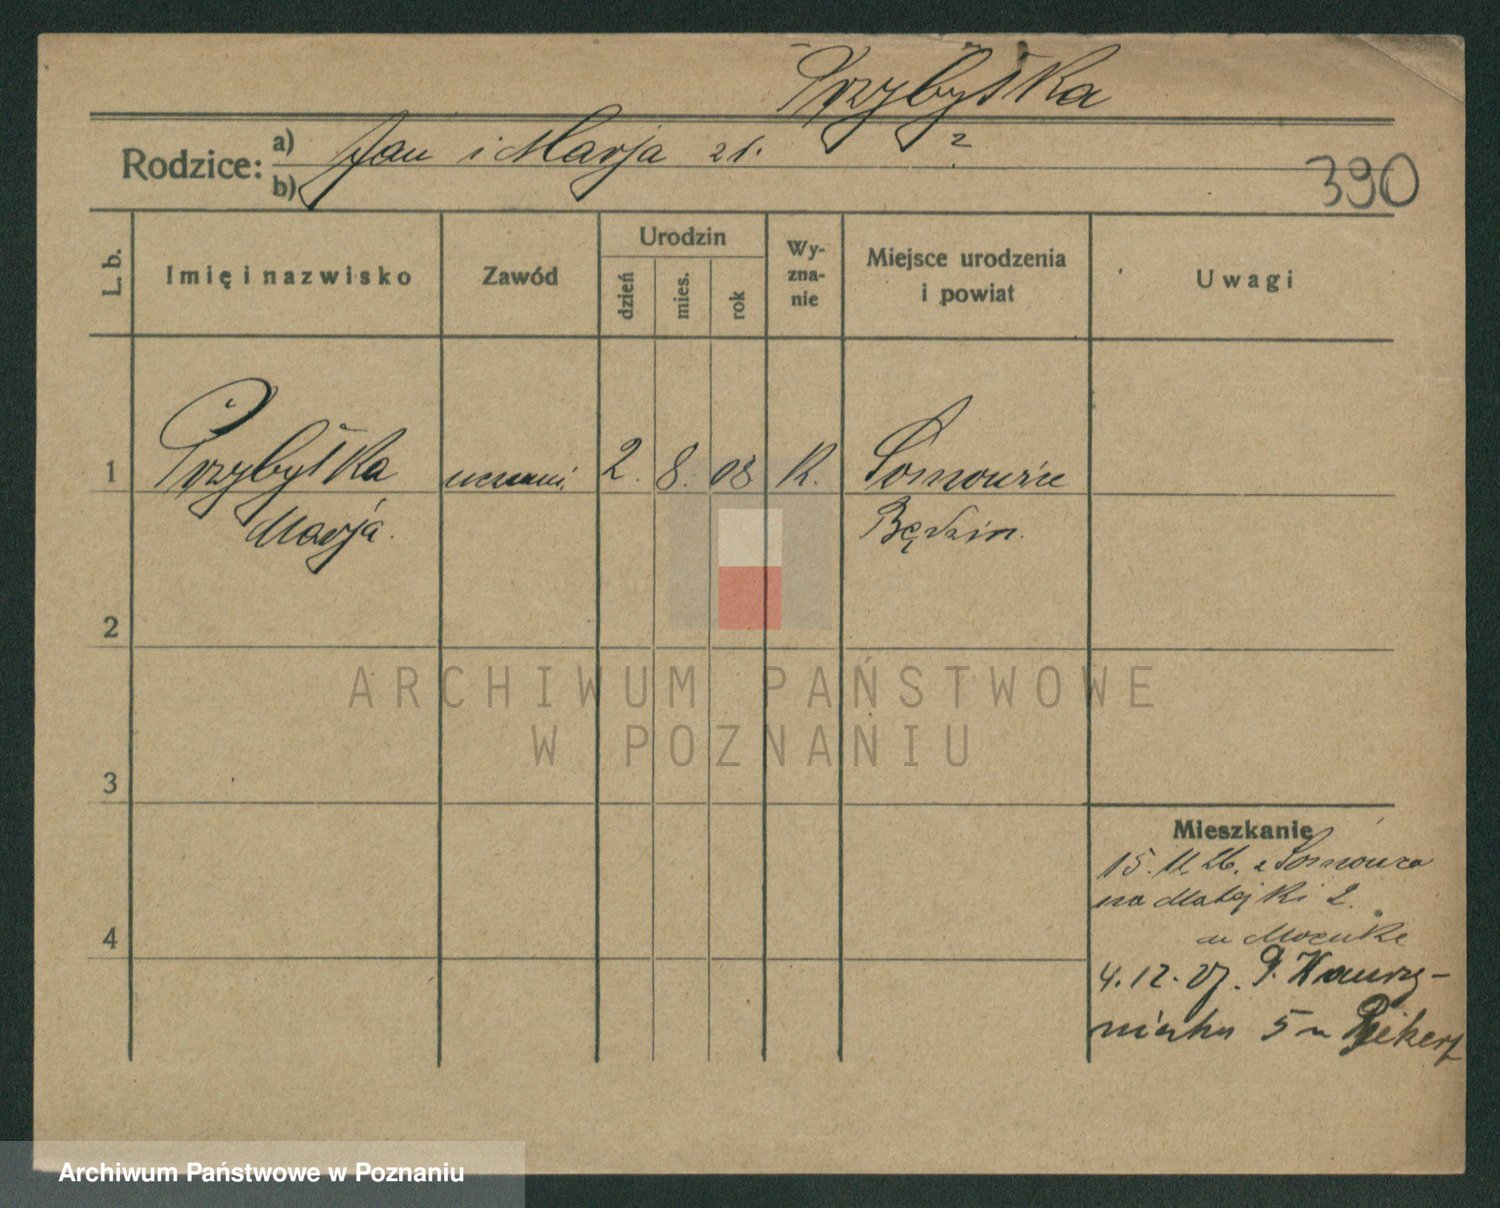 Przybyłka
Rodzice: a) Jan i Marja z d. ?
b)
390
L. b.
Imię i nazwisko
Zawód
Urodzin
dzień
mies.
rok
Wy-
zna-
nie
Miejsce urodzenia
i powiat
Uwagi
1 Przybyłka uczenni. 2. 8. 08 R. Sosnowice
Marja. Będzin.
2
3
4
ARCHIWUM PAŃSTWOWE
W POZNANIU
Mieszkanie
15. 11. 26. z Sosnowca
na Matejki 2.
4. 12. 27. P. Wawrzy-
niaka 5
Archiwum Państwowe w Poznaniu